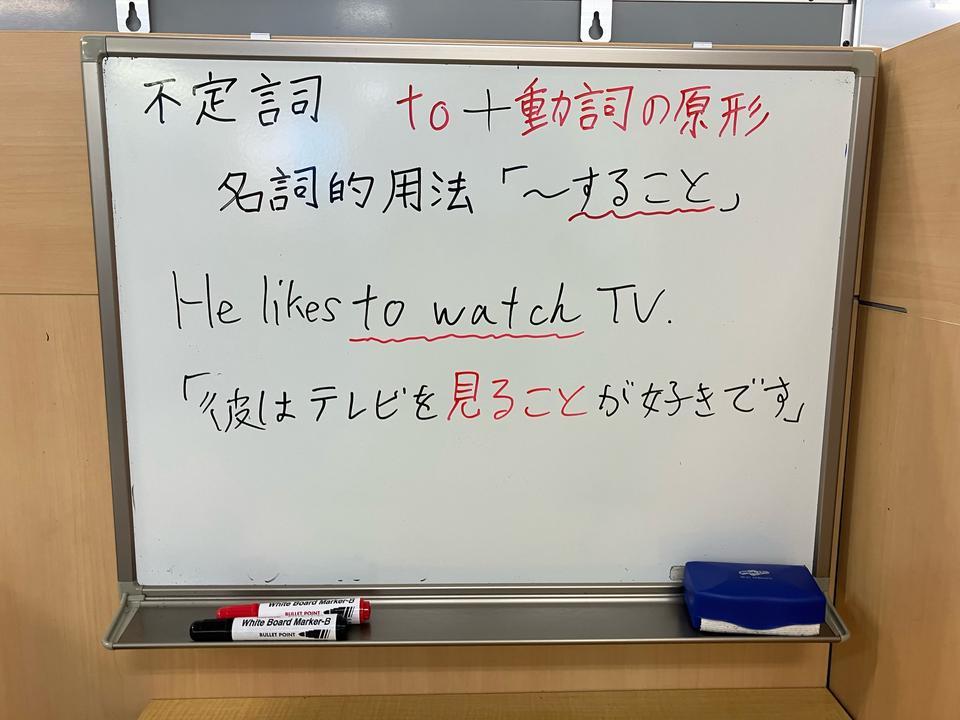 不定詞 to+動詞の原形
名詞的用法「～すること」
He likes to watch TV.
「彼はテレビを見ることが好きです」
White Board Marker-B
BULLET POINT
White Board Marker-B
BULLET POINT